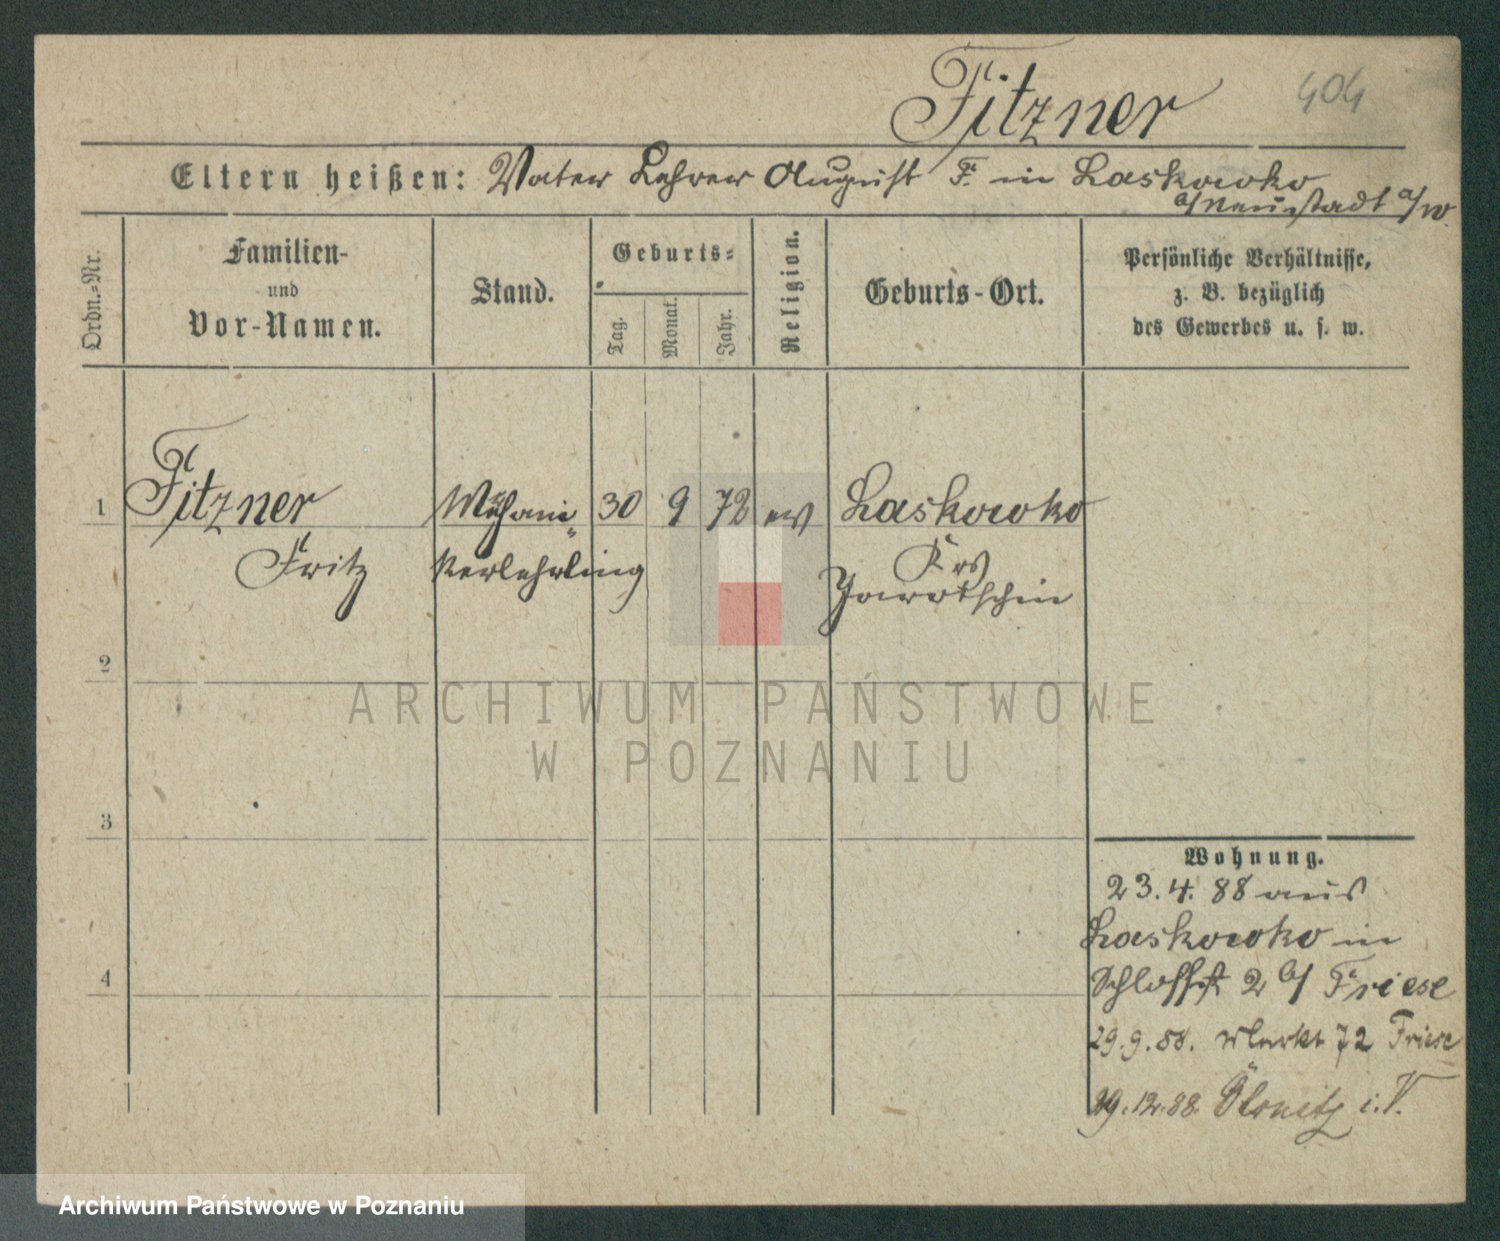 Fitzner 404
Eltern heißen: Vater Lehrer August F. in Laskowko
b/Neustadt a/W.
Ordn.-Nr.
Familien-
und
Vor-Namen.
Stand.
Geburts-
Tag.
Monat.
Jahr.
Religion.
Geburts-Ort.
Persönliche Verhältnisse,
z. B. bezüglich
des Gewerbes u. s. w.
1 Fitzner Mechani- 30 9 72 ev Laskowko
Fritz kerlehrling Krs
Jarotschin
2
ARCHIWUM PAŃSTWOWE
W POZNANIU
3
Wohnung.
23.4.88 aus
Laskowko in
Schloßstr 2 b/ Friese
4
29.9.88. Markt 72 Friese
29.12.88. i. V.
Archiwum Państwowe w Poznaniu